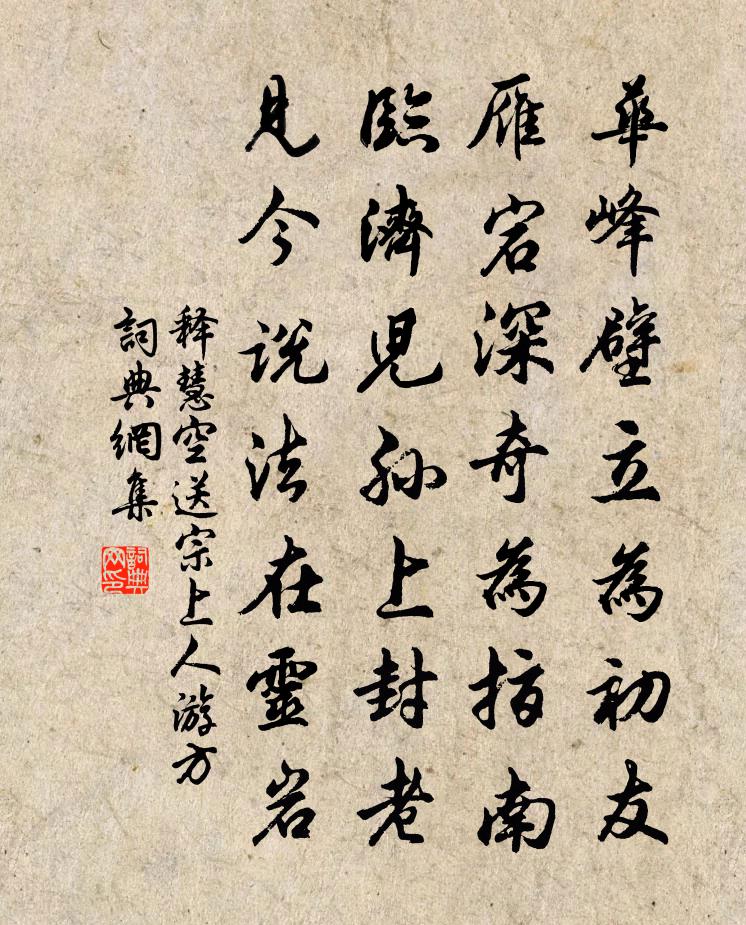 華峰壁立為初友
雁宕深奇為指南
臨濟児孫上封老
見今说法在靈岩
释慧空送宗上人游方
詞典網集
詞典网印